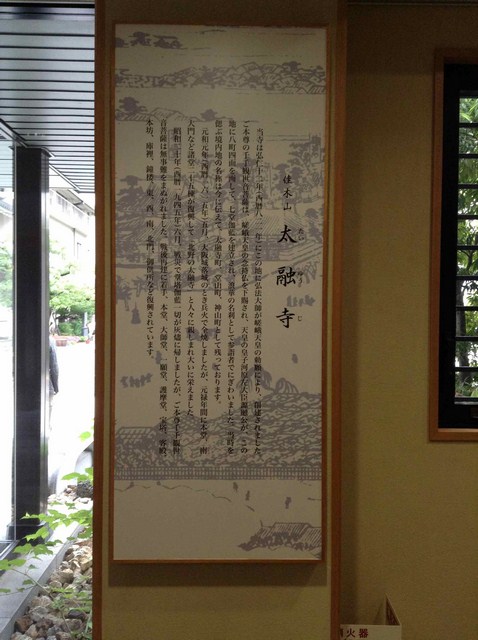 佳木山
太融寺
たいゆうじ
当寺は弘仁十二年(西暦八二一年)にこの地に弘法大師が嵯峨天皇の勅願により、創建されました。
ご本尊の千手観世音菩薩は、嵯峨天皇の念持仏を下賜され、天皇の皇子河原左大臣源融公が、この
地に八町四面を画して、七堂伽藍を建立され、浪華の名刹として参詣者でにぎわいました。当時を
偲ぶ境内地の名称は今に伝えて、太融寺町、堂山町、神山町として残っております。
元和元年(西暦一六一五年)五月、大阪城落城のとき兵火で全焼しましたが、元禄年間に本堂、南
大門など諸堂二十五棟が復興して「北野の太融寺」と人々に親しまれ大いに栄えました。
昭和二十年(西暦一九四五年)六月、戦災で堂塔伽藍一切が灰燼に帰しましたが、ご本尊千手観世
音菩薩は無事難をまぬがれました。戦後再建に着手、本堂、大師堂、一願堂、護摩堂、宝塔、客殿、
本坊、庫裡、鐘楼、東、西、南、北門、
など復興されています。
消火器